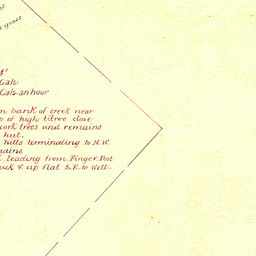 grass
4'
Gals
Gals. an hour
bank of creek near
of high titree close
work trees and remains
hut.
hills terminating to N.W.
leading from Finger Post
& up flat S.E. to Well.